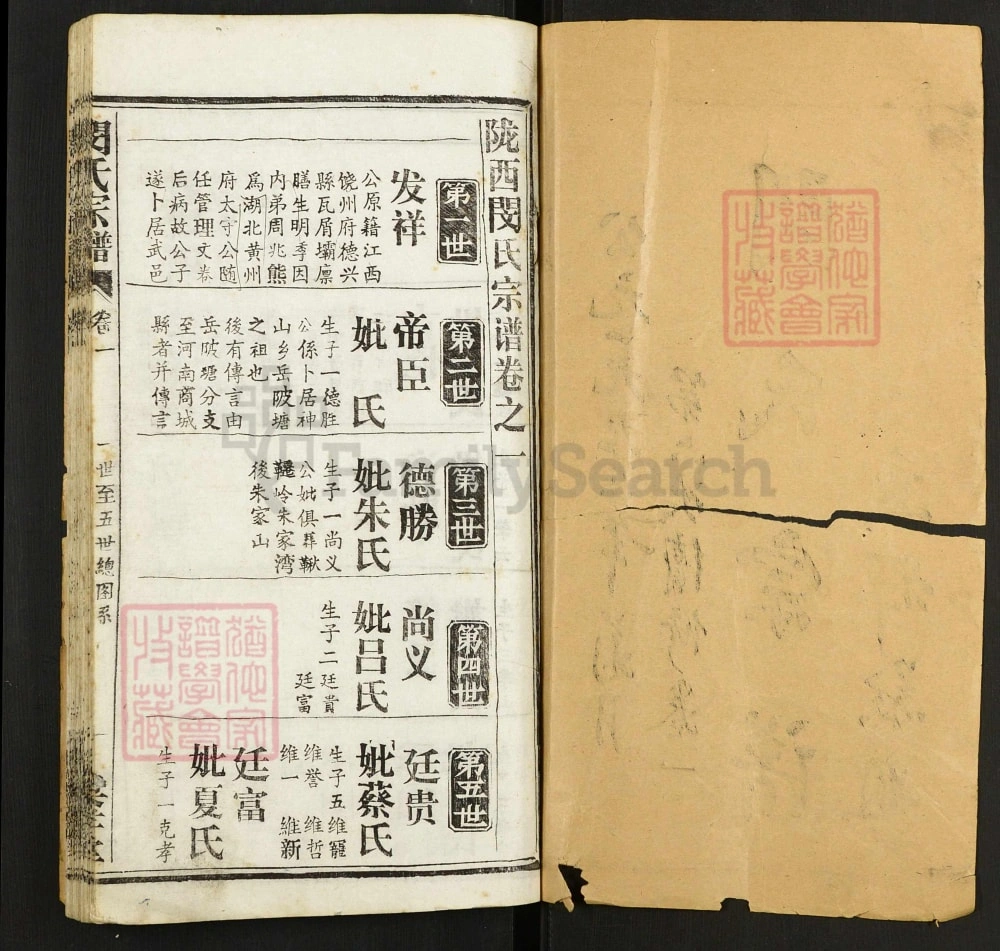 陇西閔氏宗谱卷之一
第一世
发祥
公原籍江西
饶州府德兴
縣瓦屑壩廪
膳生明季因
内弟周兆熊
爲湖北黄州
府太守公随
任管理文卷
后病故公子
遂卜居武邑
第二世
帝臣
妣 氏
生子一德胜
公係卜居神
山乡岳陂塘
之祖也
後有傳言由
岳陂塘分支
至河南商城
縣者并傳言
第三世
德勝
妣朱氏
生子一尚义
公妣俱葬鞦
韆岭朱家湾
後朱家山
第四世
尚义
妣吕氏
生子二 廷貴
廷富
第五世
廷贵
妣蔡氏
生子五 维寵
维誉 维哲
维一 維新
廷富
妣夏氏
生子一克孝
閔氏宗譜
卷一
一世至五世總图系
猶他家
譜學會
收藏
猶他家
譜學會
收藏
FamilySearch